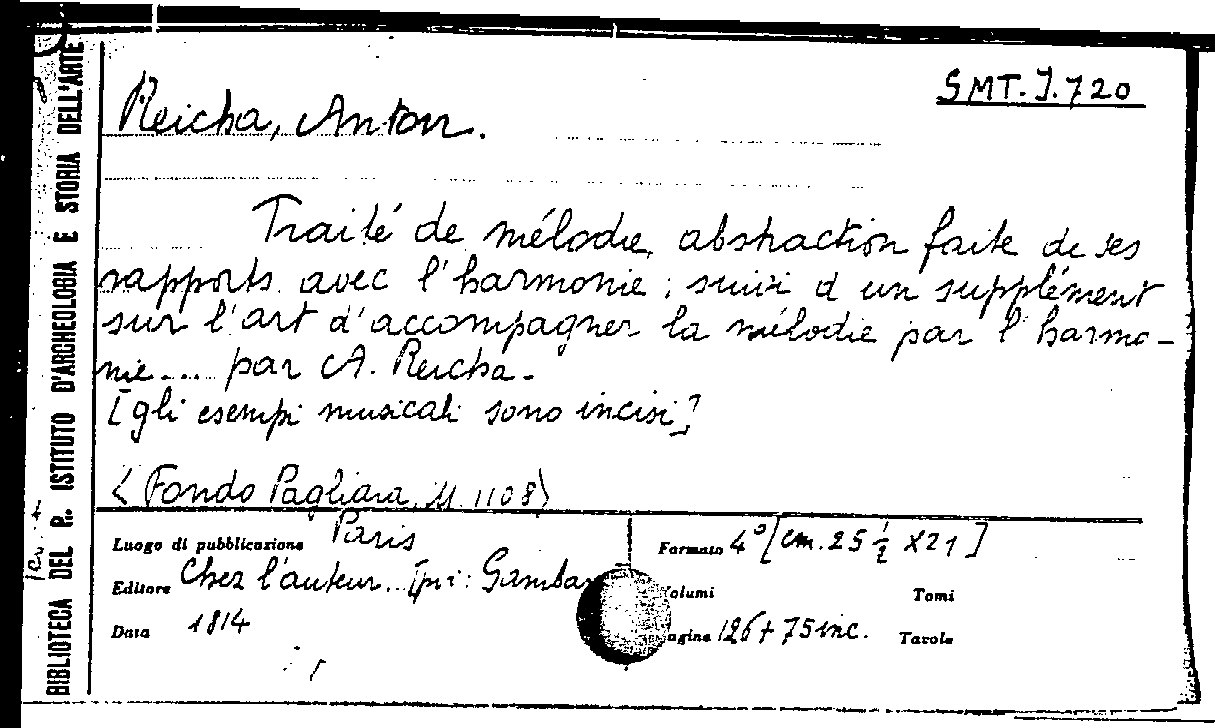 BIBLIOTECA DEL R. ISTITUTO D'ARCHEOLOGIA E STORIA DELL'ARTE
SMT. J. 720
Reicha, Anton.
Traité de mélodie, abstraction faite de ses
rapports avec l'harmonie; suivi d'un supplément
sur l'art d'accompagner la mélodie par l'harmo-
nie... par A. Reicha.
[gli esempi musicali sono incisi]
<Fondo Pagliara, M. 1108>
Luogo di pubblicazione Paris
Formato 4° [cm. 25 ½ X 21]
Editore Chez l'auteur. Gambar
Volumi Tomi
Data 1814
Pagine 126 + 75 inc. Tavole